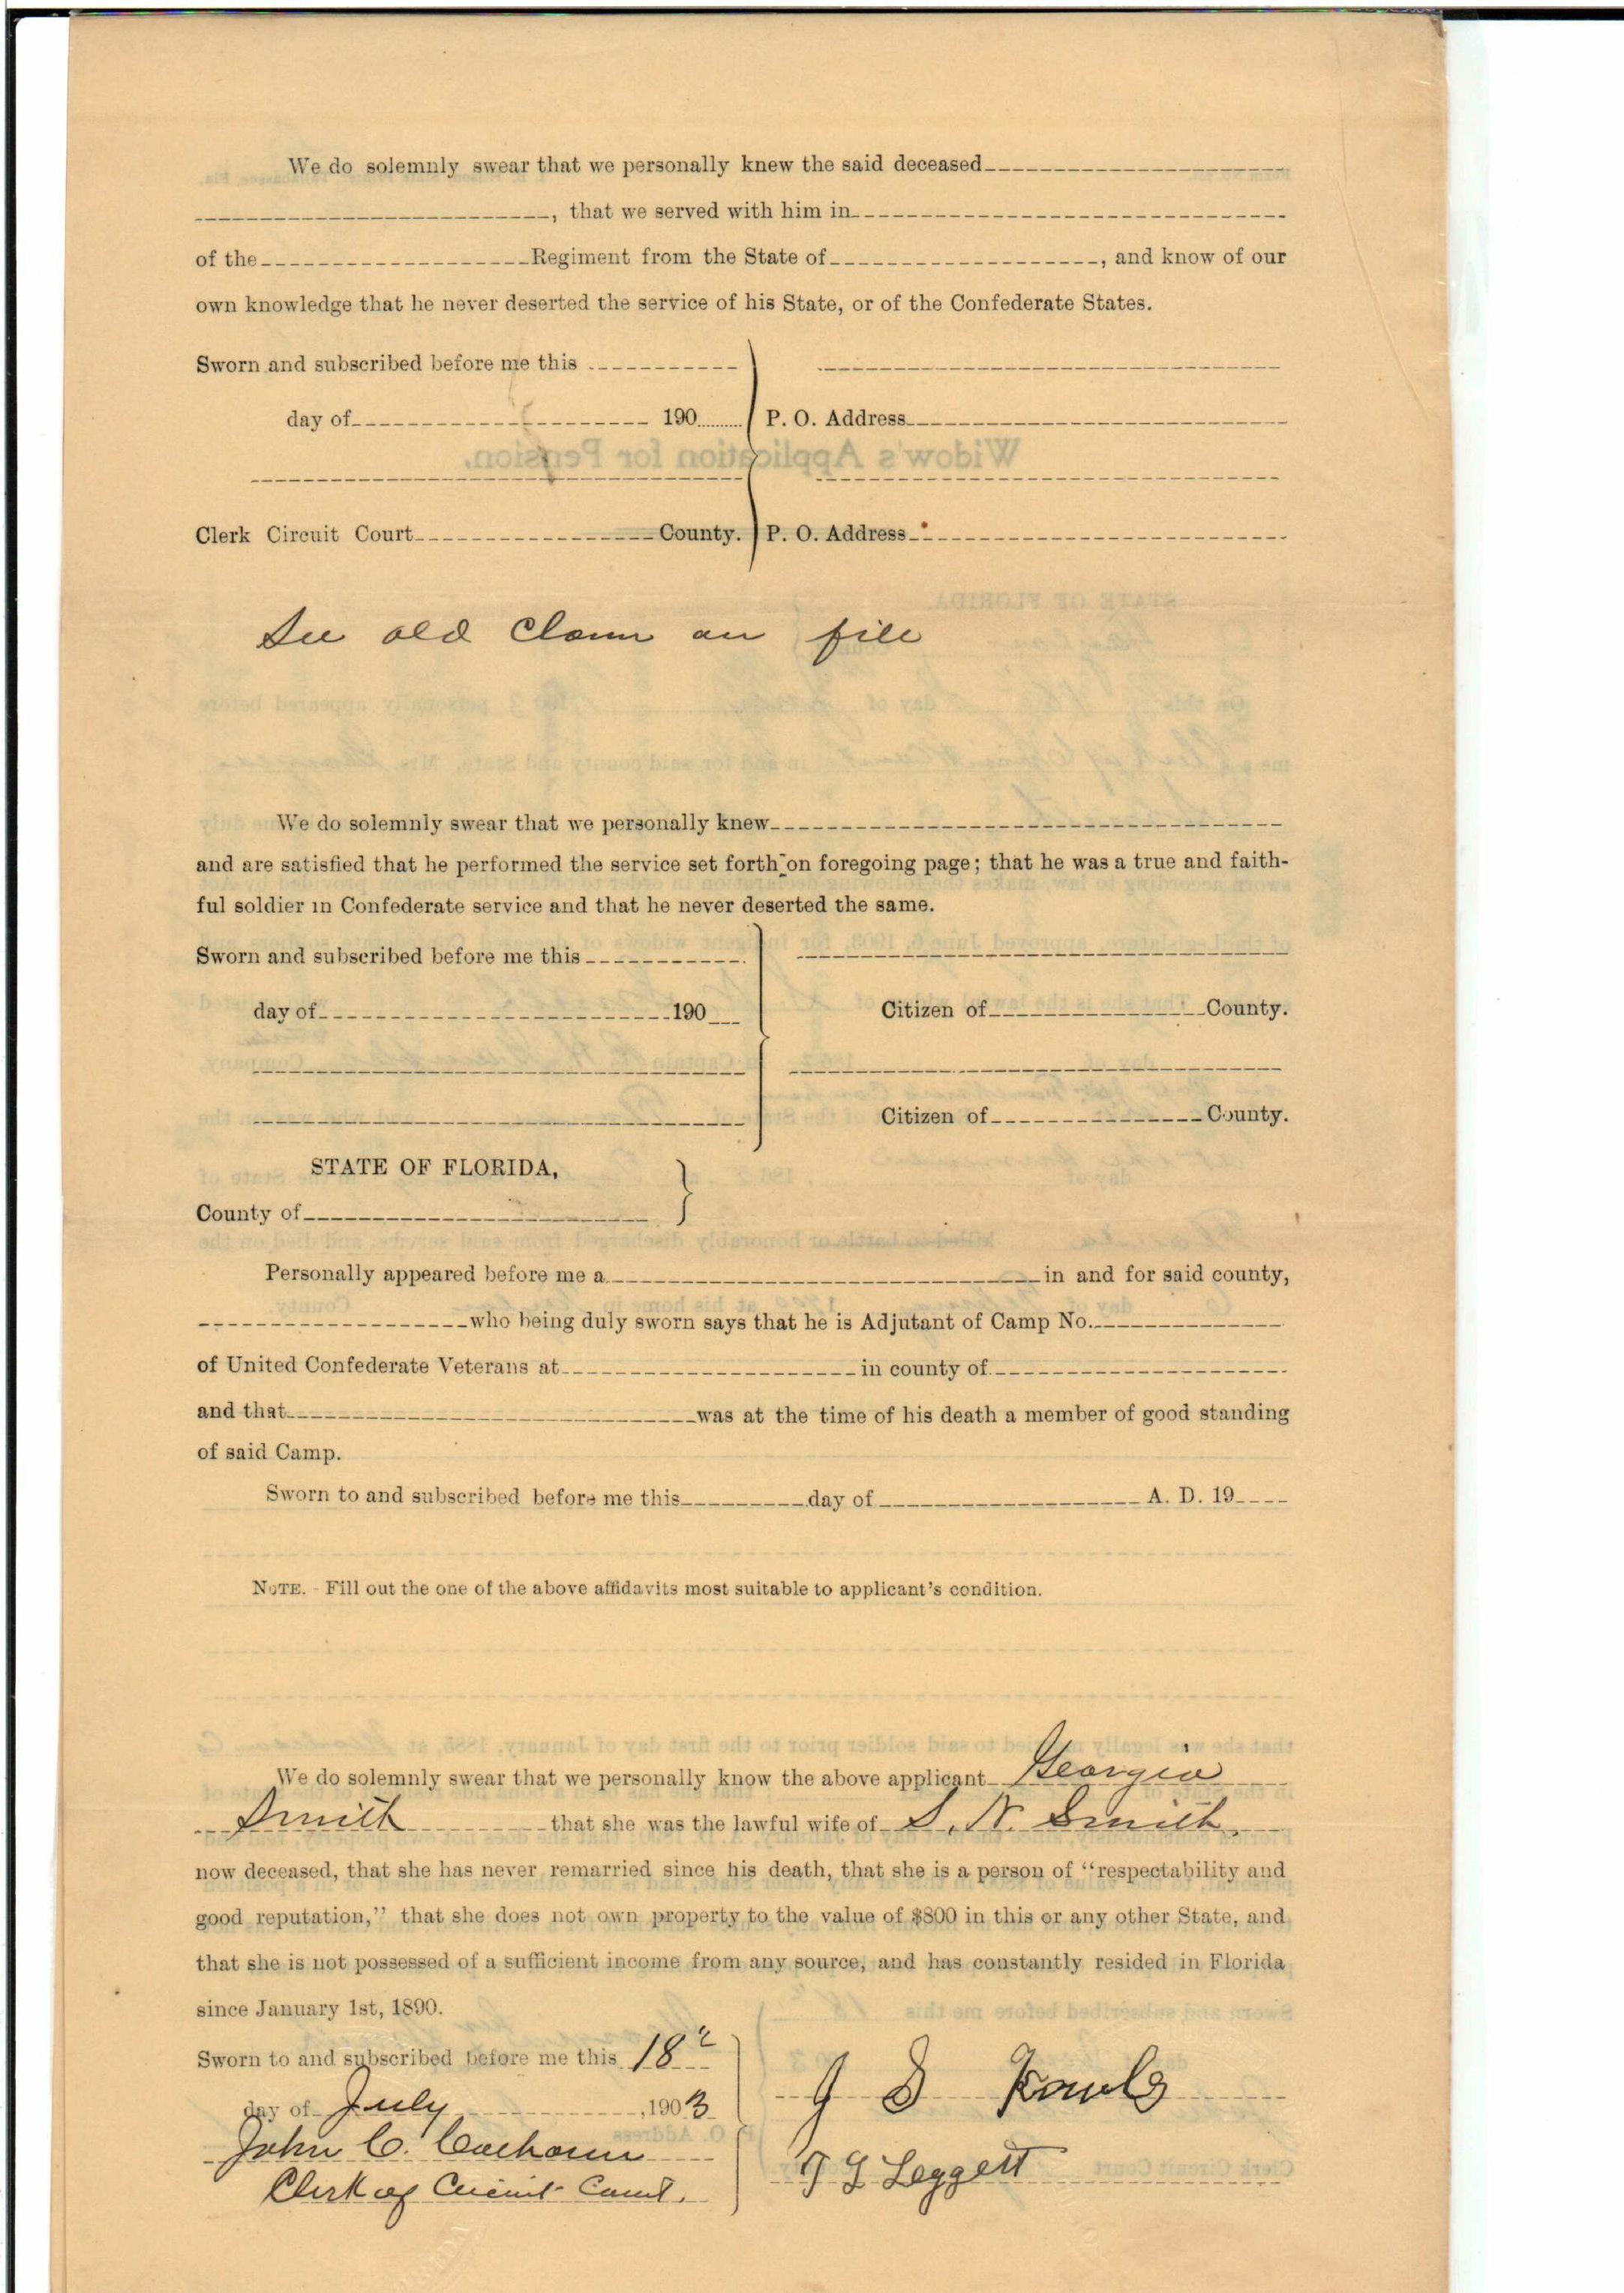 We do solemnly swear that we personally knew the said deceased
, that we served with him in
of the Regiment from the State of , and know of our
own knowledge that he never deserted the service of his State, or of the Confederate States.
Sworn and subscribed before me this
day of 190 P. O. Address
Widow's Application for Pension.
Clerk Circuit Court County. P. O. Address
STATE OF FLORIDA
See old Claim on file
We do solemnly swear that we personally knew
and are satisfied that he performed the service set forth on foregoing page; that he was a true and faith-
ful soldier in Confederate service and that he never deserted the same.
Sworn and subscribed before me this
day of 190 Citizen of County.
Citizen of County.
STATE OF FLORIDA,
County of
Personally appeared before me a in and for said county,
who being duly sworn says that he is Adjutant of Camp No.
of United Confederate Veterans at in county of
and that was at the time of his death a member of good standing
of said Camp.
Sworn to and subscribed before me this day of A. D. 19
NOTE. - Fill out the one of the above affidavits most suitable to applicant's condition.
We do solemnly swear that we personally know the above applicant Georgia
Smith that she was the lawful wife of S. N. Smith
now deceased, that she has never remarried since his death, that she is a person of "respectability and
good reputation," that she does not own property to the value of $800 in this or any other State, and
that she is not possessed of a sufficient income from any source, and has constantly resided in Florida
since January 1st, 1890.
Sworn to and subscribed before me this 18
day of July ,1903 J S
John C. Calhoun
T J Leggett
Clerk of Circuit Court.